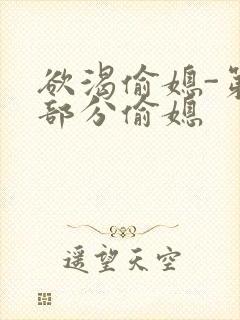 欲渴偷媳-第
部分偷媳
遥望天空